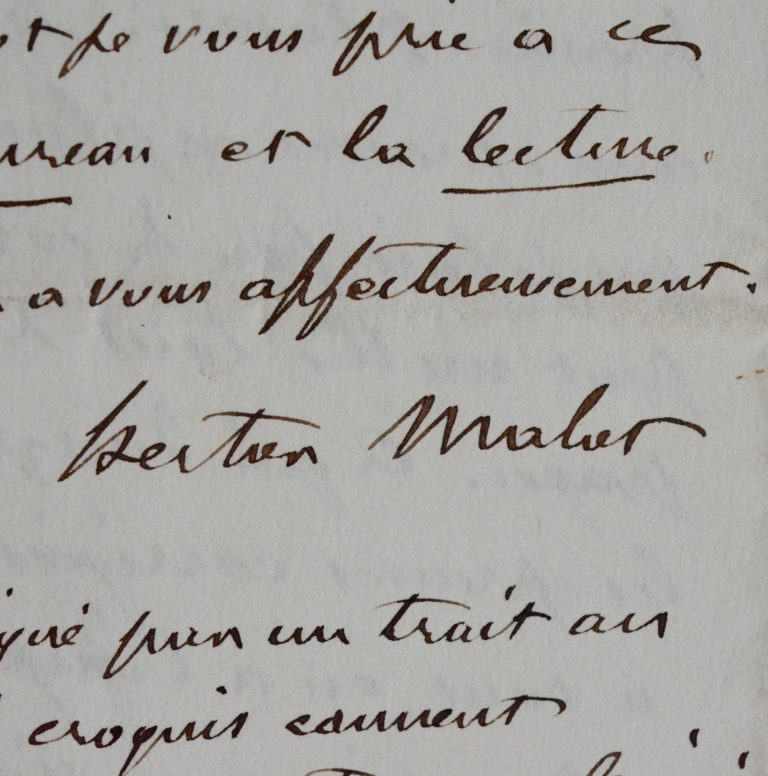 je vous prie a ces
et la lecture.
a vous affectueusement.
Hector Malot
par un trait au
croquis